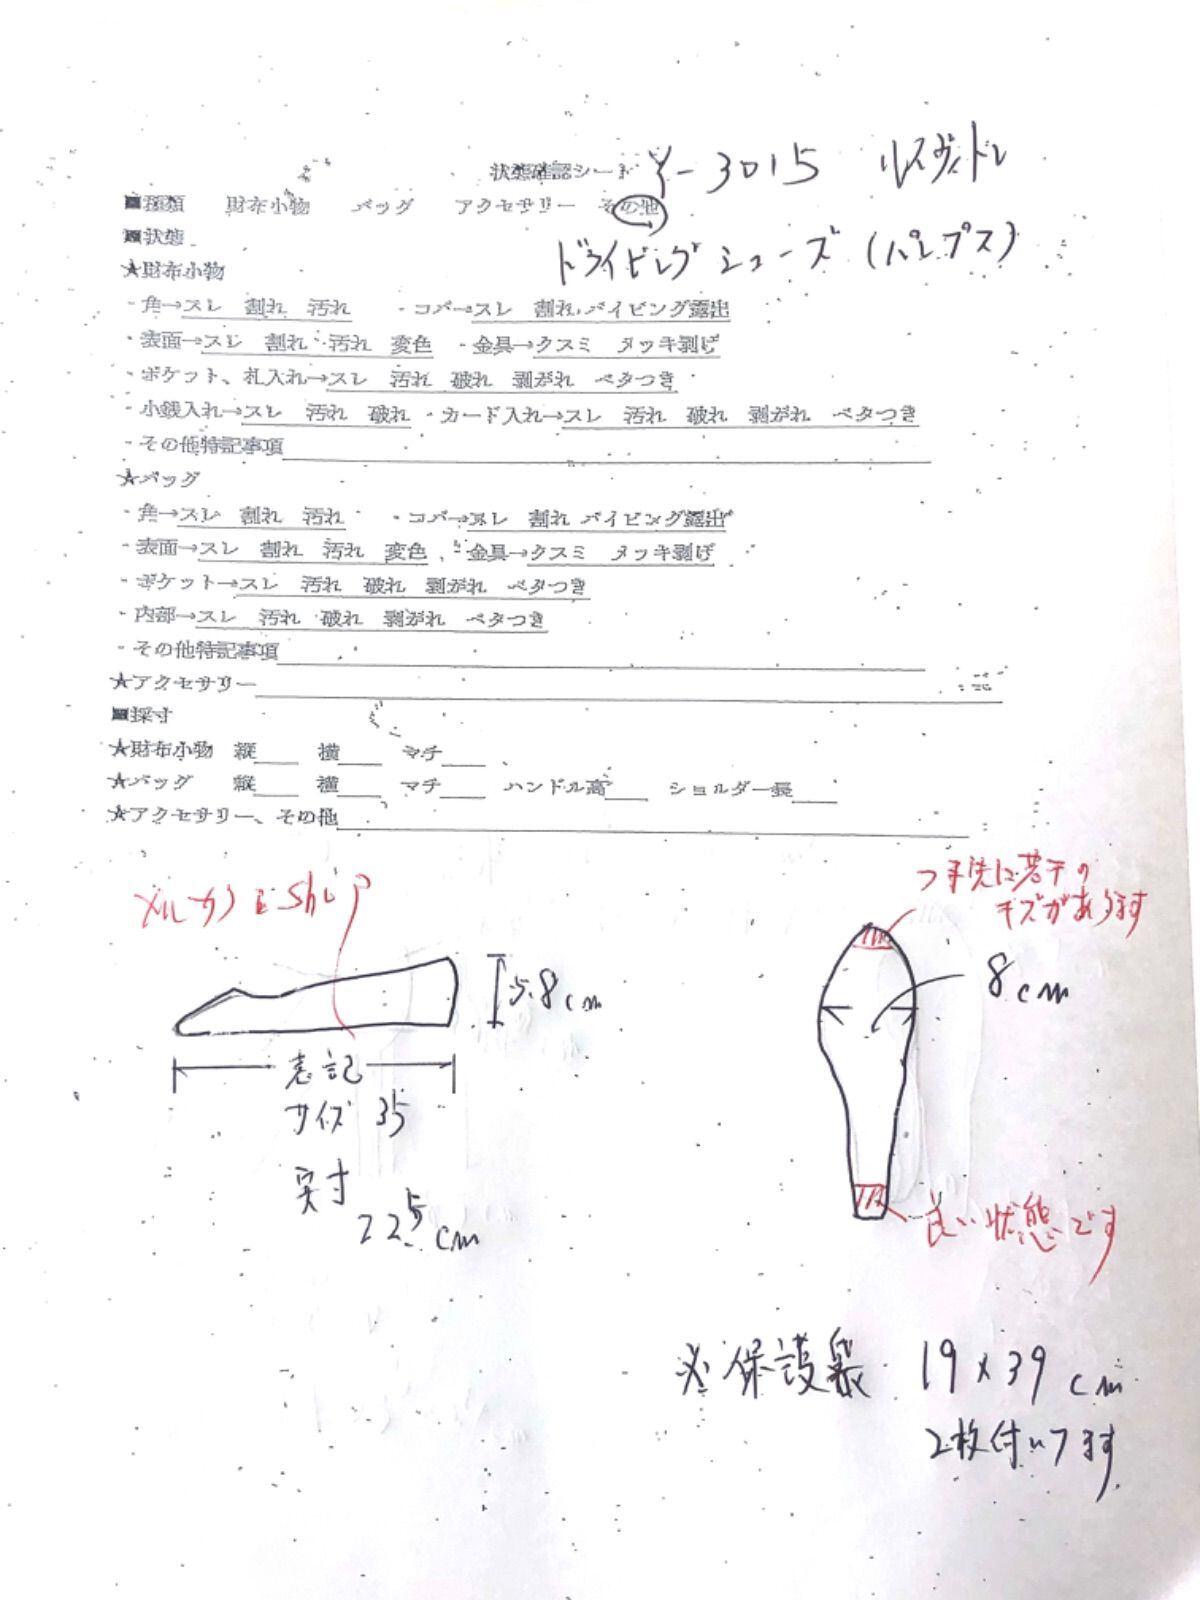 状態確認シート Y-3015 ルイヴィトン
■種類 財布小物 バッグ アクセサリー その他
ドライビングシューズ (パンプス)
■状態
★財布小物
・角→スレ 割れ 汚れ ・コバ→スレ 割れ パイピング露出
・表面→スレ 割れ 汚れ 変色 ・金具→クスミ メッキ剥げ
・ポケット、札入れ→スレ 汚れ 破れ 剥がれ ベタつき
・小銭入れ→スレ 汚れ 破れ ・カード入れ→スレ 汚れ 破れ 剥がれ ベタつき
・その他特記事項
★バッグ
・角→スレ 割れ 汚れ ・コバ→スレ 割れ パイピング露出
・表面→スレ 割れ 汚れ 変色 ・金具→クスミ メッキ剥げ
・ポケット→スレ 汚れ 破れ 剥がれ ベタつき
・内部→スレ 汚れ 破れ 剥がれ ベタつき
・その他特記事項
★アクセサリー
■採寸
★財布小物 縦 横 マチ
★バッグ 縦 横 マチ ハンドル高 ショルダー長
★アクセサリー、その他
つま先に若干の
キズがあります
Ship
5.8cm
8cm
表記
サイズ 35
実寸
22.5cm
良い状態です
※保護袋 19×39cm
2枚付いてます